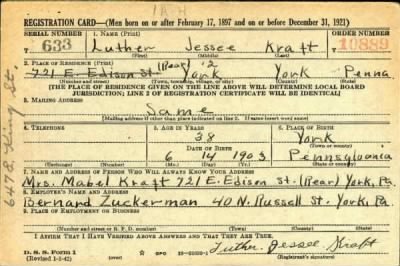 1 A H
REGISTRATION CARD—(Men born on or after February 17, 1897 and on or before December 31, 1921)
SERIAL NUMBER 1. NAME (Print) ORDER NUMBER
T 633 Luther Jessee Kraft 10889
2. PLACE OF RESIDENCE (Print)
721 E. Edison St. (Rear) York York Penna
(Number and street) (Town, township, village, or city) (County) (State)
[THE PLACE OF RESIDENCE GIVEN ON THE LINE ABOVE WILL DETERMINE LOCAL BOARD
JURISDICTION; LINE 2 OF REGISTRATION CERTIFICATE WILL BE IDENTICAL]
3. MAILING ADDRESS
Same
[Mailing address if other than place indicated on line 2. If same insert word same]
4. TELEPHONE 5. AGE IN YEARS 6. PLACE OF BIRTH
38 York
DATE OF BIRTH (Town or county)
6 14 1903 Pennsylvania
(Exchange) (Number) (Mo.) (Day) (Yr.) (State or country)
7. NAME AND ADDRESS OF PERSON WHO WILL ALWAYS KNOW YOUR ADDRESS
Mrs. Mabel Kraft 721 E. Edison St. (Rear) York, Pa.
8. EMPLOYER'S NAME AND ADDRESS
Bernard Zuckerman 40 N. Russell St. York, Pa.
9. PLACE OF EMPLOYMENT OR BUSINESS
(Number and street or R. F. D. number) (Town) (County) (State)
I AFFIRM THAT I HAVE VERIFIED ABOVE ANSWERS AND THAT THEY ARE TRUE.
D. S. S. Form 1
(Revised 1-1-42) GPO Luther Jessee Kraft
647 E. King St.